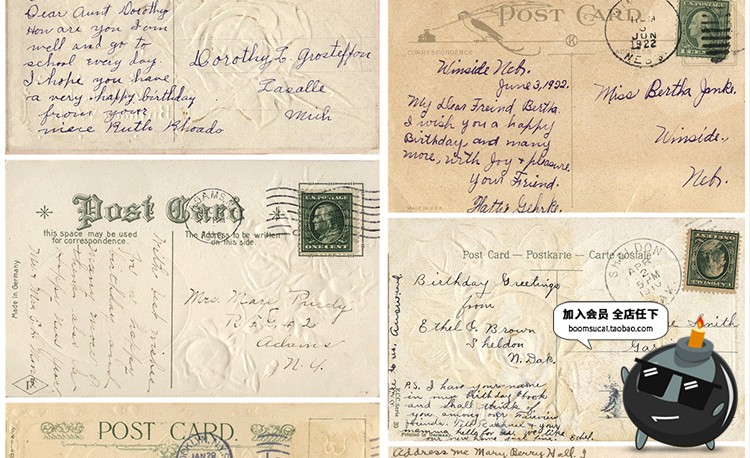 Dear Aunt Dorothy
How are you I am
well and go to
school every day.
I hope you have
a very happy birthday
from your
niece Ruth Rhoads
Dorothy E. Grosteffon
Lasalle
Mich
POST CARD
CORRESPONDENCE
JUN
1922
Winside Neb.
June 3, 1922.
My Dear Freind Bertha.
I wish you a happy
Birthday, and many
more, with Joy & pleasure.
Your Friend.
Hattie Gehrke.
Miss Bertha Janke.
Winside.
Neb.
MADE IN U.S.A.
Post Card
this space may be used
for correspondence.
The Address to be written
on this side.
Made in Germany.
ADAMS
U.S. POSTAGE
ONE CENT
With best wishes
for a happy
birthday and
many more of
them
Mrs. Mary
Adams
N.Y.
Post Card — Postkarte — Carte postale
SHELDON
APR
2
5 PM
Birthday Greetings
from
Ethel G. Brown
Sheldon
N. Dak.
Smith
P.S. I have your name
in my birthday book
and shall think of
you among my
friends.
Ethel.
Printed in Germany
加入会员 全店任下
boomsucai.taobao.com
POST CARD
JAN 29
Address me Mary Berry Hall